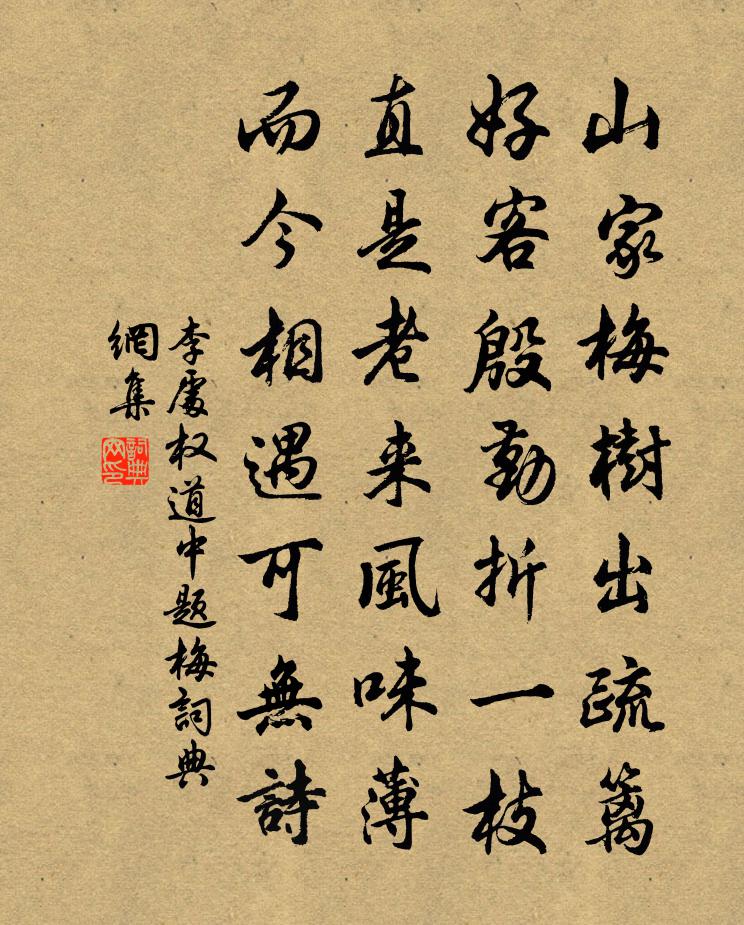 山家梅樹出疏籬
好客殷勤折一枝
直是老来風味薄
而今相遇可無詩
李處权道中題梅詞典
網集
詞典網印